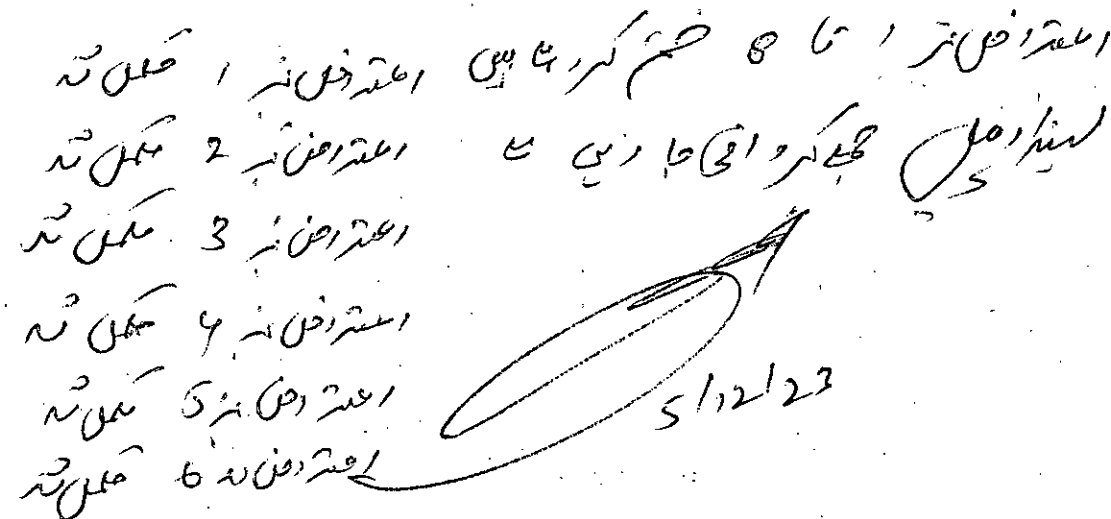 اعتراض نمبر 1 تا 8 ختم کر دئیے ہیں
لہذا اپیل جمع کروائی جا رہی ہے
اعتراض نمبر 1 مکمل شد
اعتراض نمبر 2 مکمل شد
اعتراض نمبر 3 مکمل شد
اعتراض نمبر 4 مکمل شد
اعتراض نمبر 5 مکمل شد
اعتراض نمبر 6 مکمل شد
5/12/23